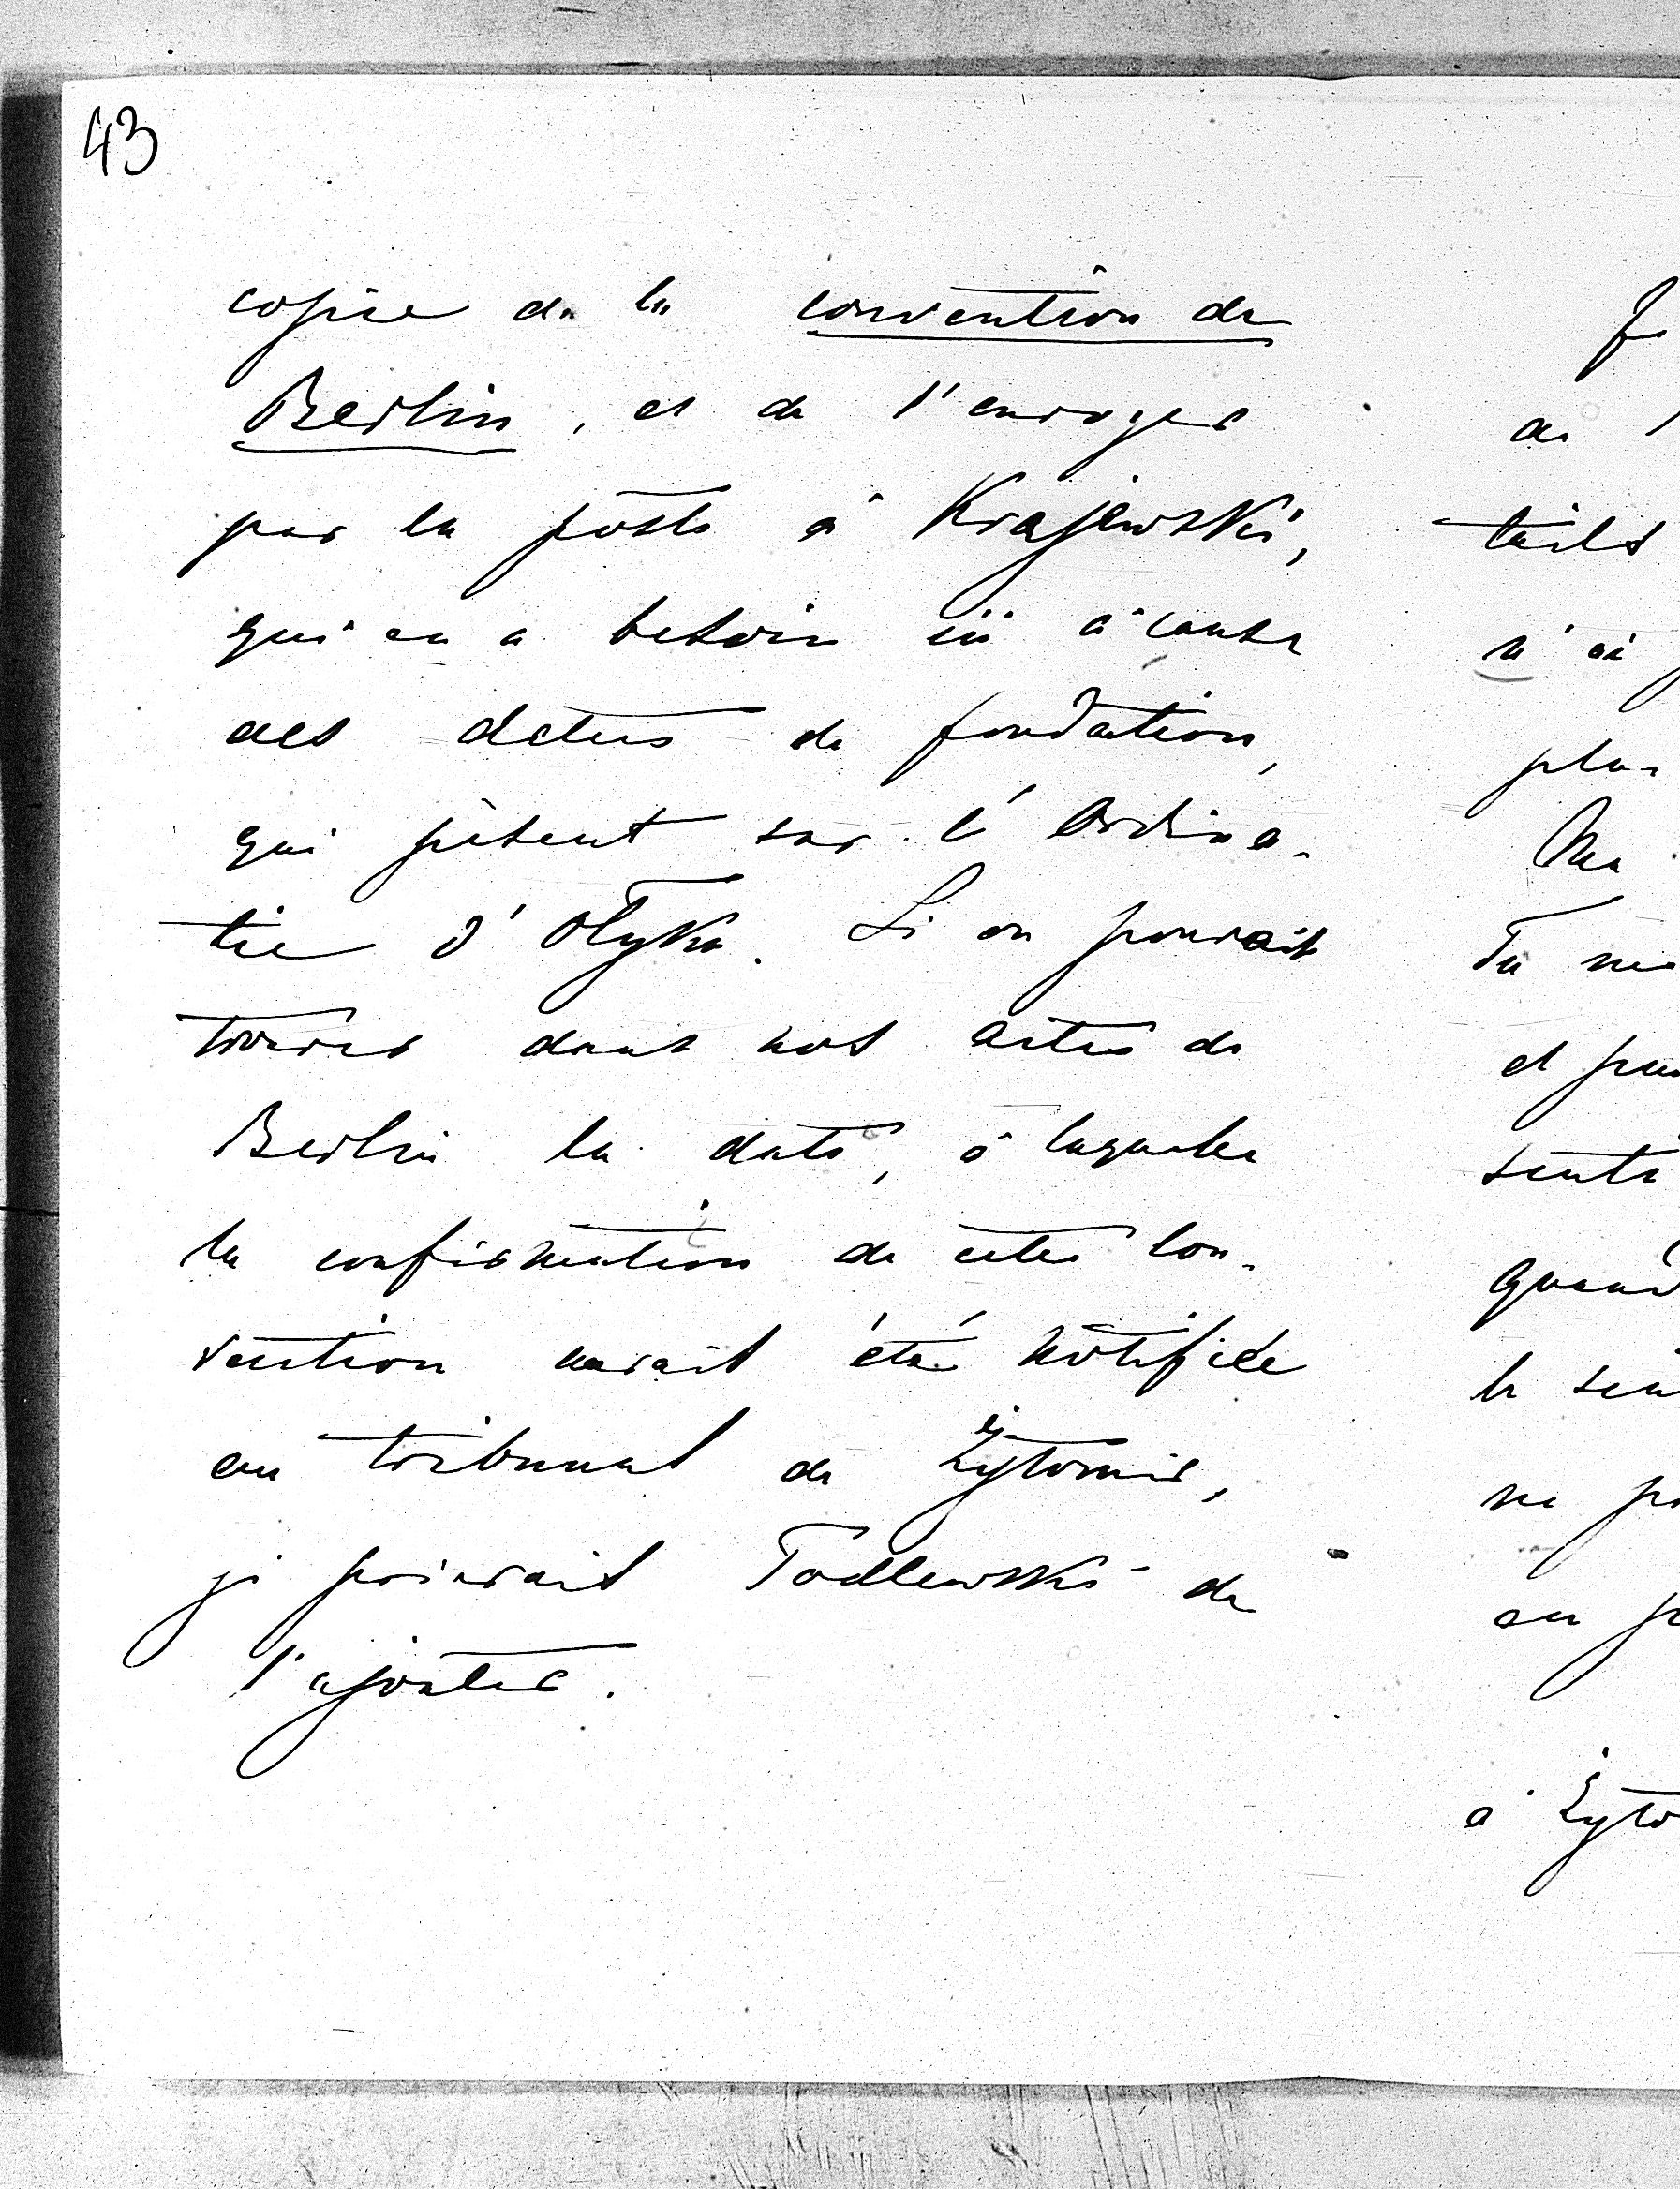 43
copie de la convention de
Berlin, et de l'envoyer
par la poste à Krajewski,
qui en a besoin ici à cause
des dettes de fondation,
qui pèsent sur l'Ordina-
tie d'Olyka. Si on pouvait
trouver dans nos actes de
Berlin la date, à laquelle
la confirmation de cette con-
vention aurait été notifiée
au tribunal de Żytomir,
je prierait Todlewski de
l'ajouter.
tails
n'ai
plus
Ma
Tu me
et
quand
le
ne
au
à Żyto